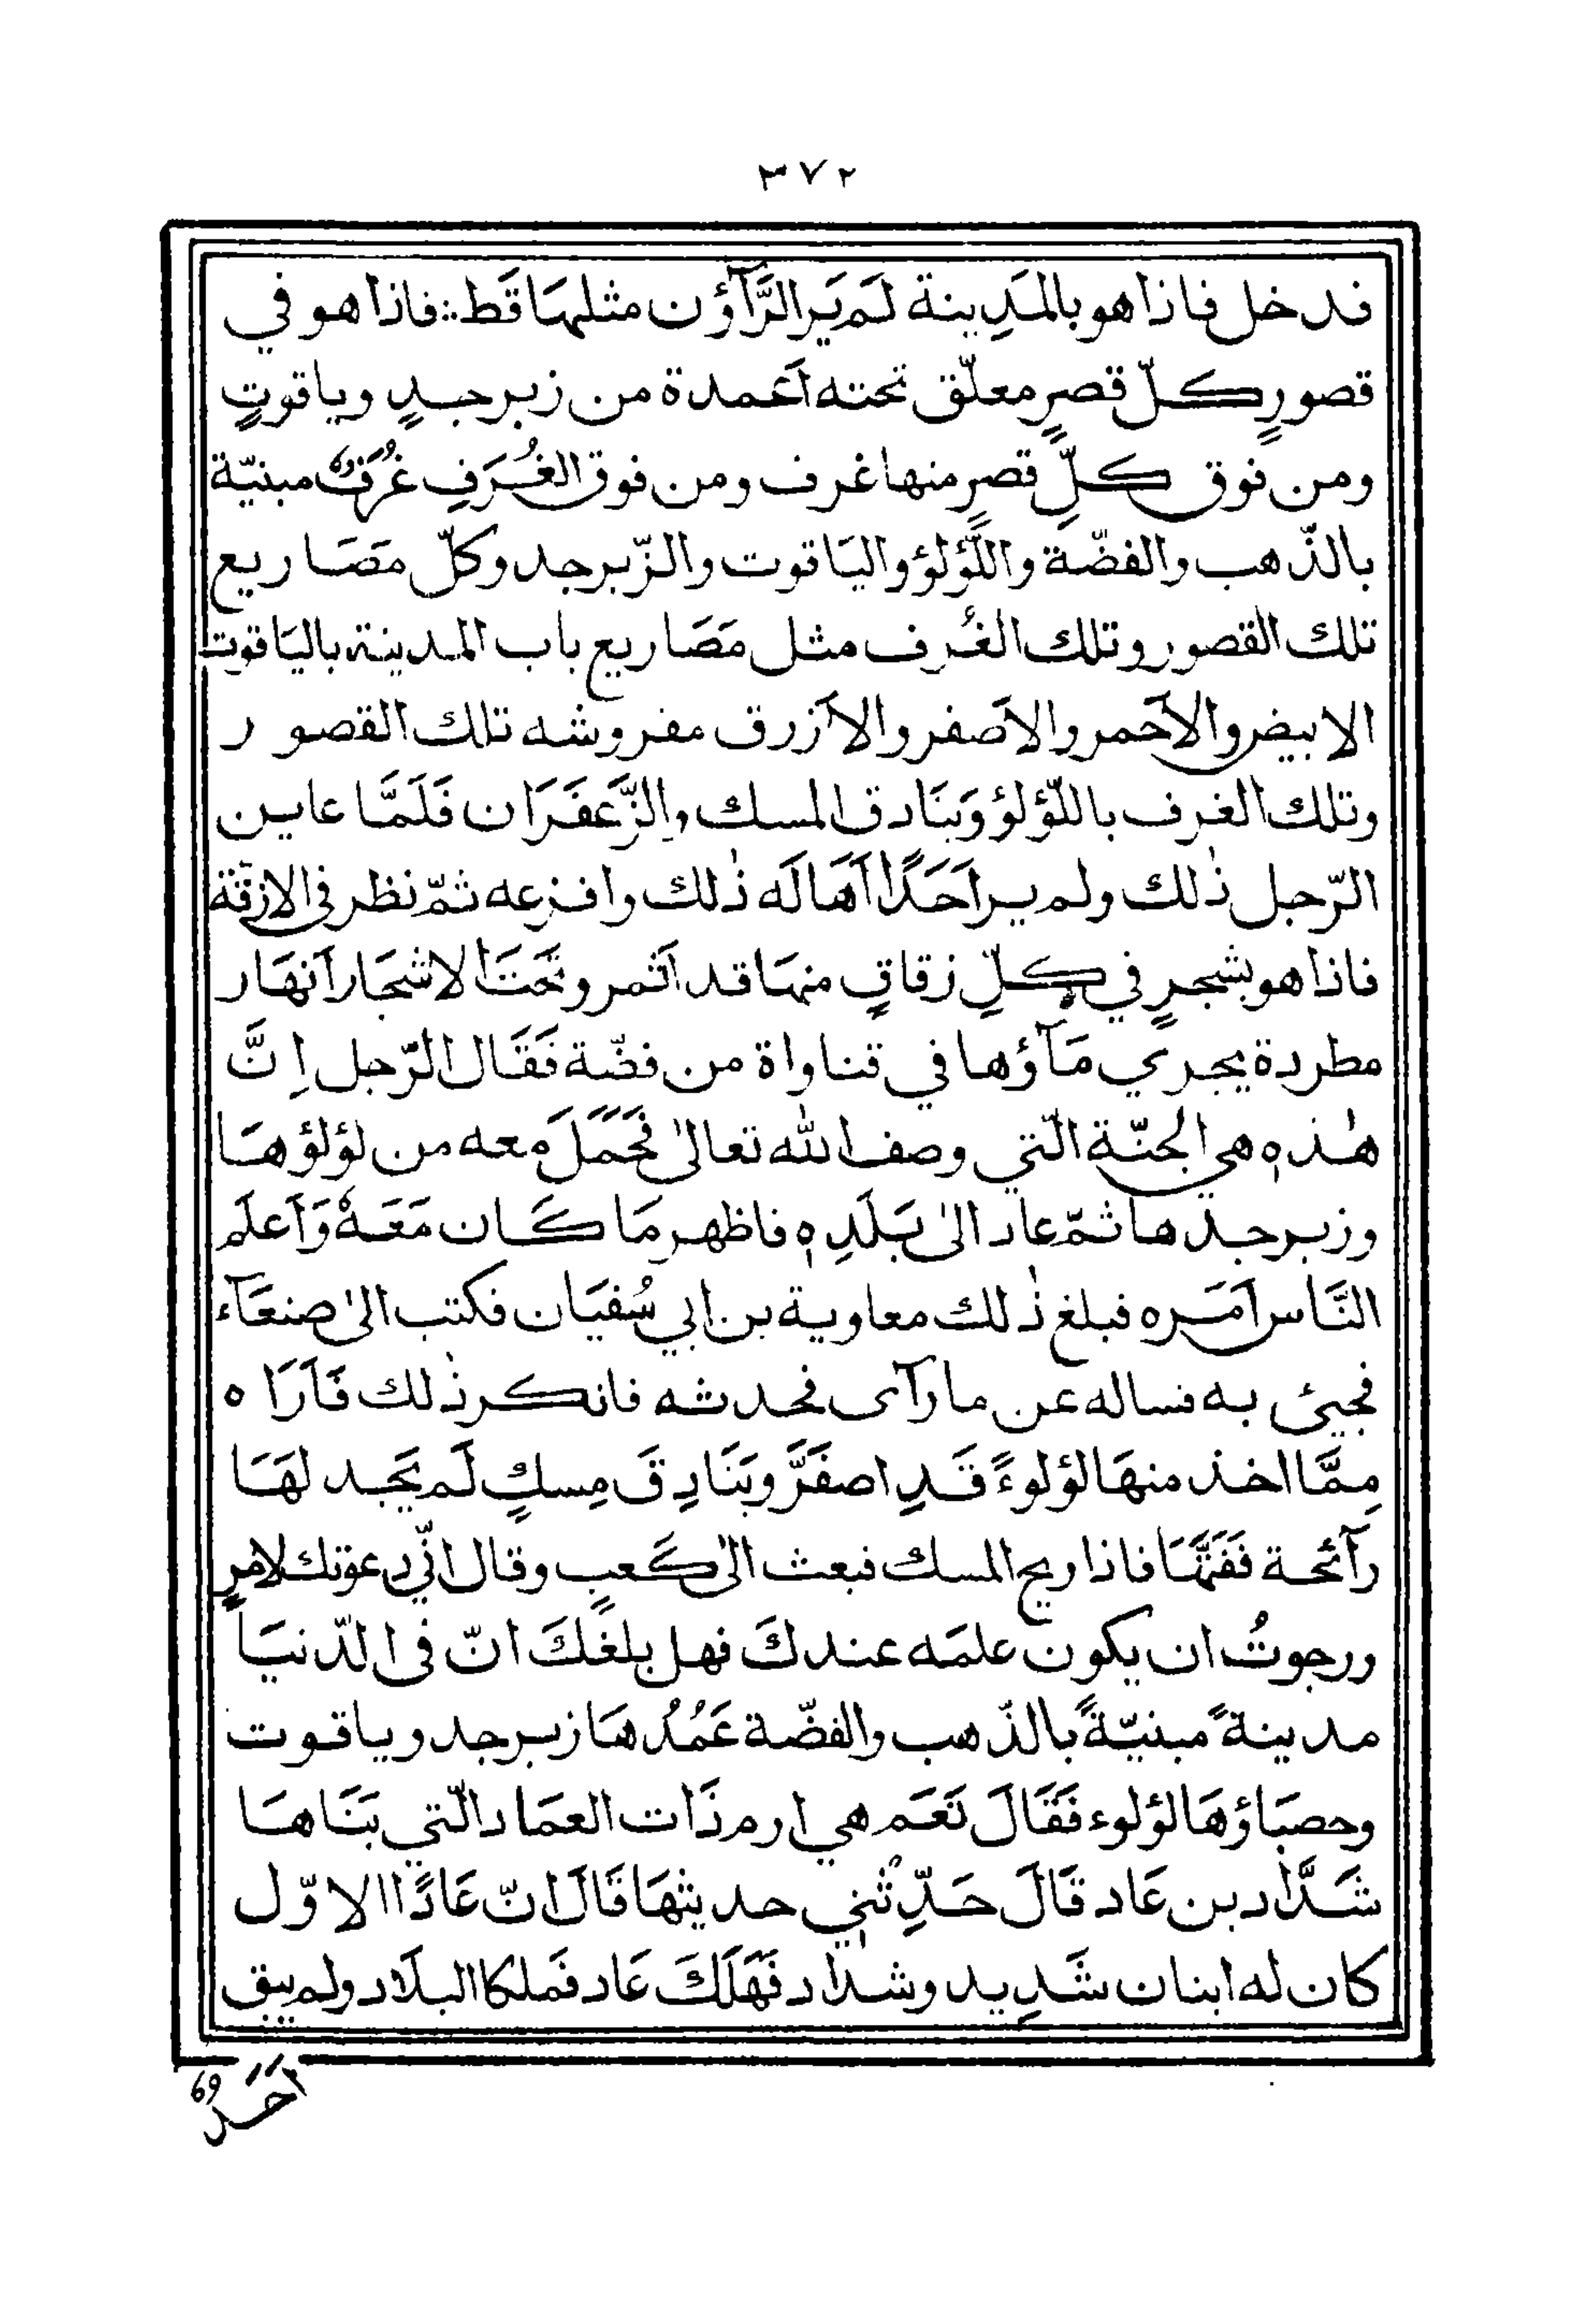 ٣٧٢
فدخل فاذا هو بالمَدِينة لَم يَر الرَّآؤن مثلهَا قَط فاذا هو في
قصورٍ كلّ قصرٍ معلّق تحته اَعمدة من زبرجدٍ وياقوتٍ
ومن فوق كلِّ قصرٍ منها غرف ومن فوق الغُرَفِ غُرَفٌ مبنيّة
بالذّهب والفضّة واللّؤلؤ واليَاقوت والزّبرجد وكلّ مَصَاريع
تلك القصور وتلك الغُرف مثل مَصَاريع باب المدينة باليَاقوت
الابيض والاَحمر والاَصفر والاَزرق مفروشه تلك القصور
وتلك الغرف باللّؤلؤ وَبنَادق المسك والزَّعفَرَان فَلَمَّا عاين
الرّجل ذٰلك ولم ير اَحَدًا اَهَالَه ذٰلك وافزعه ثمّ نظر فى الازقّة
فاذا هو بشجرٍ في كلِّ زقاقٍ منهَا قد اَثمر وتَحتَ الاشجَار اَنهَار
مطردة يجري مَآؤها في قناواة من فضّة فَقَال الرّجل اِنَّ
هٰذهٖ هي الجنّة الّتي وصف الله تعالىٰ فحَمَلَ معه من لؤلؤهَا
وزبرجدها ثمّ عاد الىٰ بَلَدِهٖ فاظهر مَا كَان مَعَهٗ وَاَعلَم
النَّاس اَمَره فبلغ ذٰلك معاوية بن ابي سُفيَان فكتب الىٰ صنعَآء
فجيئ به فساله عن ما رآى فحدثه فانكر ذٰلك فَاَرَاه
مِمَّا اخذ منهَا لؤلوءً قَدِ اصفَرَّ وبَنَادِقَ مِسكٍ لَم يَجِد لهَا
رآئحة فَفَتَّهَا فاذا ريح المسك فبعث الىٰ كَعبٍ وقال انّي دعوتك لامرٍ
ورجوتُ ان يكون علمَه عندكَ فهل بلغكَ انّ فى الدّنيَا
مدينةً مبنيّةً بالذّهب والفضّة عَمُدُهَا زبرجد وياقوت
وحصبَاؤهَا لؤلوء فَقَالَ نَعَم هي ارم ذَات العمَاد الّتي بَنَاهَا
شَدَّاد بن عَاد قَالَ حَدِّثْني حديثهَا قَالَ انّ عَادًا الاوّل
كان له ابنان شَدِيد وشداد فَهَلَكَ عَاد فمَلكا البلَاد ولم يبق
اَحَدٌ